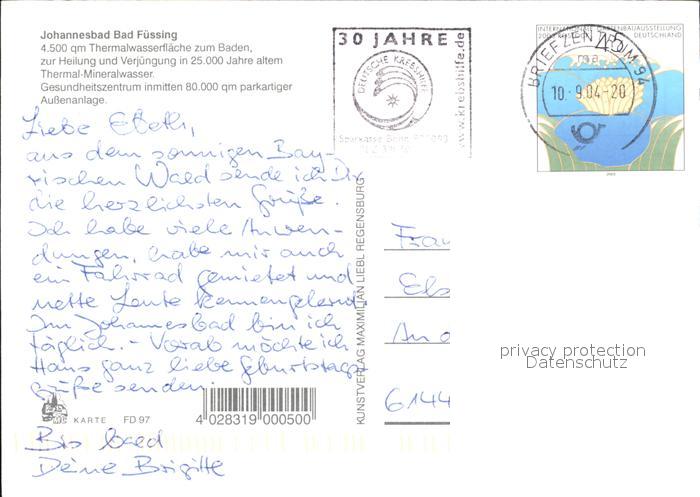 Johannesbad Bad Füssing
4.500 qm Thermalwasserfläche zum Baden,
zur Heilung und Verjüngung in 25.000 Jahre altem
Thermal-Mineralwasser.
Gesundheitszentrum inmitten 80.000 qm parkartiger
Außenanlage.
30 JAHRE
DEUTSCHE KREBSHILFE
www.krebshilfe.de
Sparkasse Bonn
INTERNATIONALE GARTENBAUAUSSTELLUNG
DEUTSCHLAND
45
BRIEFZENTRUM 94
ma
10.9.04-20
Liebe
aus dem sonnigen Bay-
rischen Wald sende ich Dir
die herzlichsten Grüße.
Ich habe viele Anwen-
dungen, habe mir auch
ein Fahrrad gemietet und
nette Leute kennengelernt.
Im Johannesbad bin ich
täglich. - Vorab möchte ich
Hans ganz liebe Geburtstags-
grüße senden.
Bis bald
Deine Brigitte
KARTE FD 97
4 028319 000500
KUNSTVERLAG MAXIMILIAN LIEBL REGENSBURG
Frau
Els
An
6144
privacy protection
Datenschutz